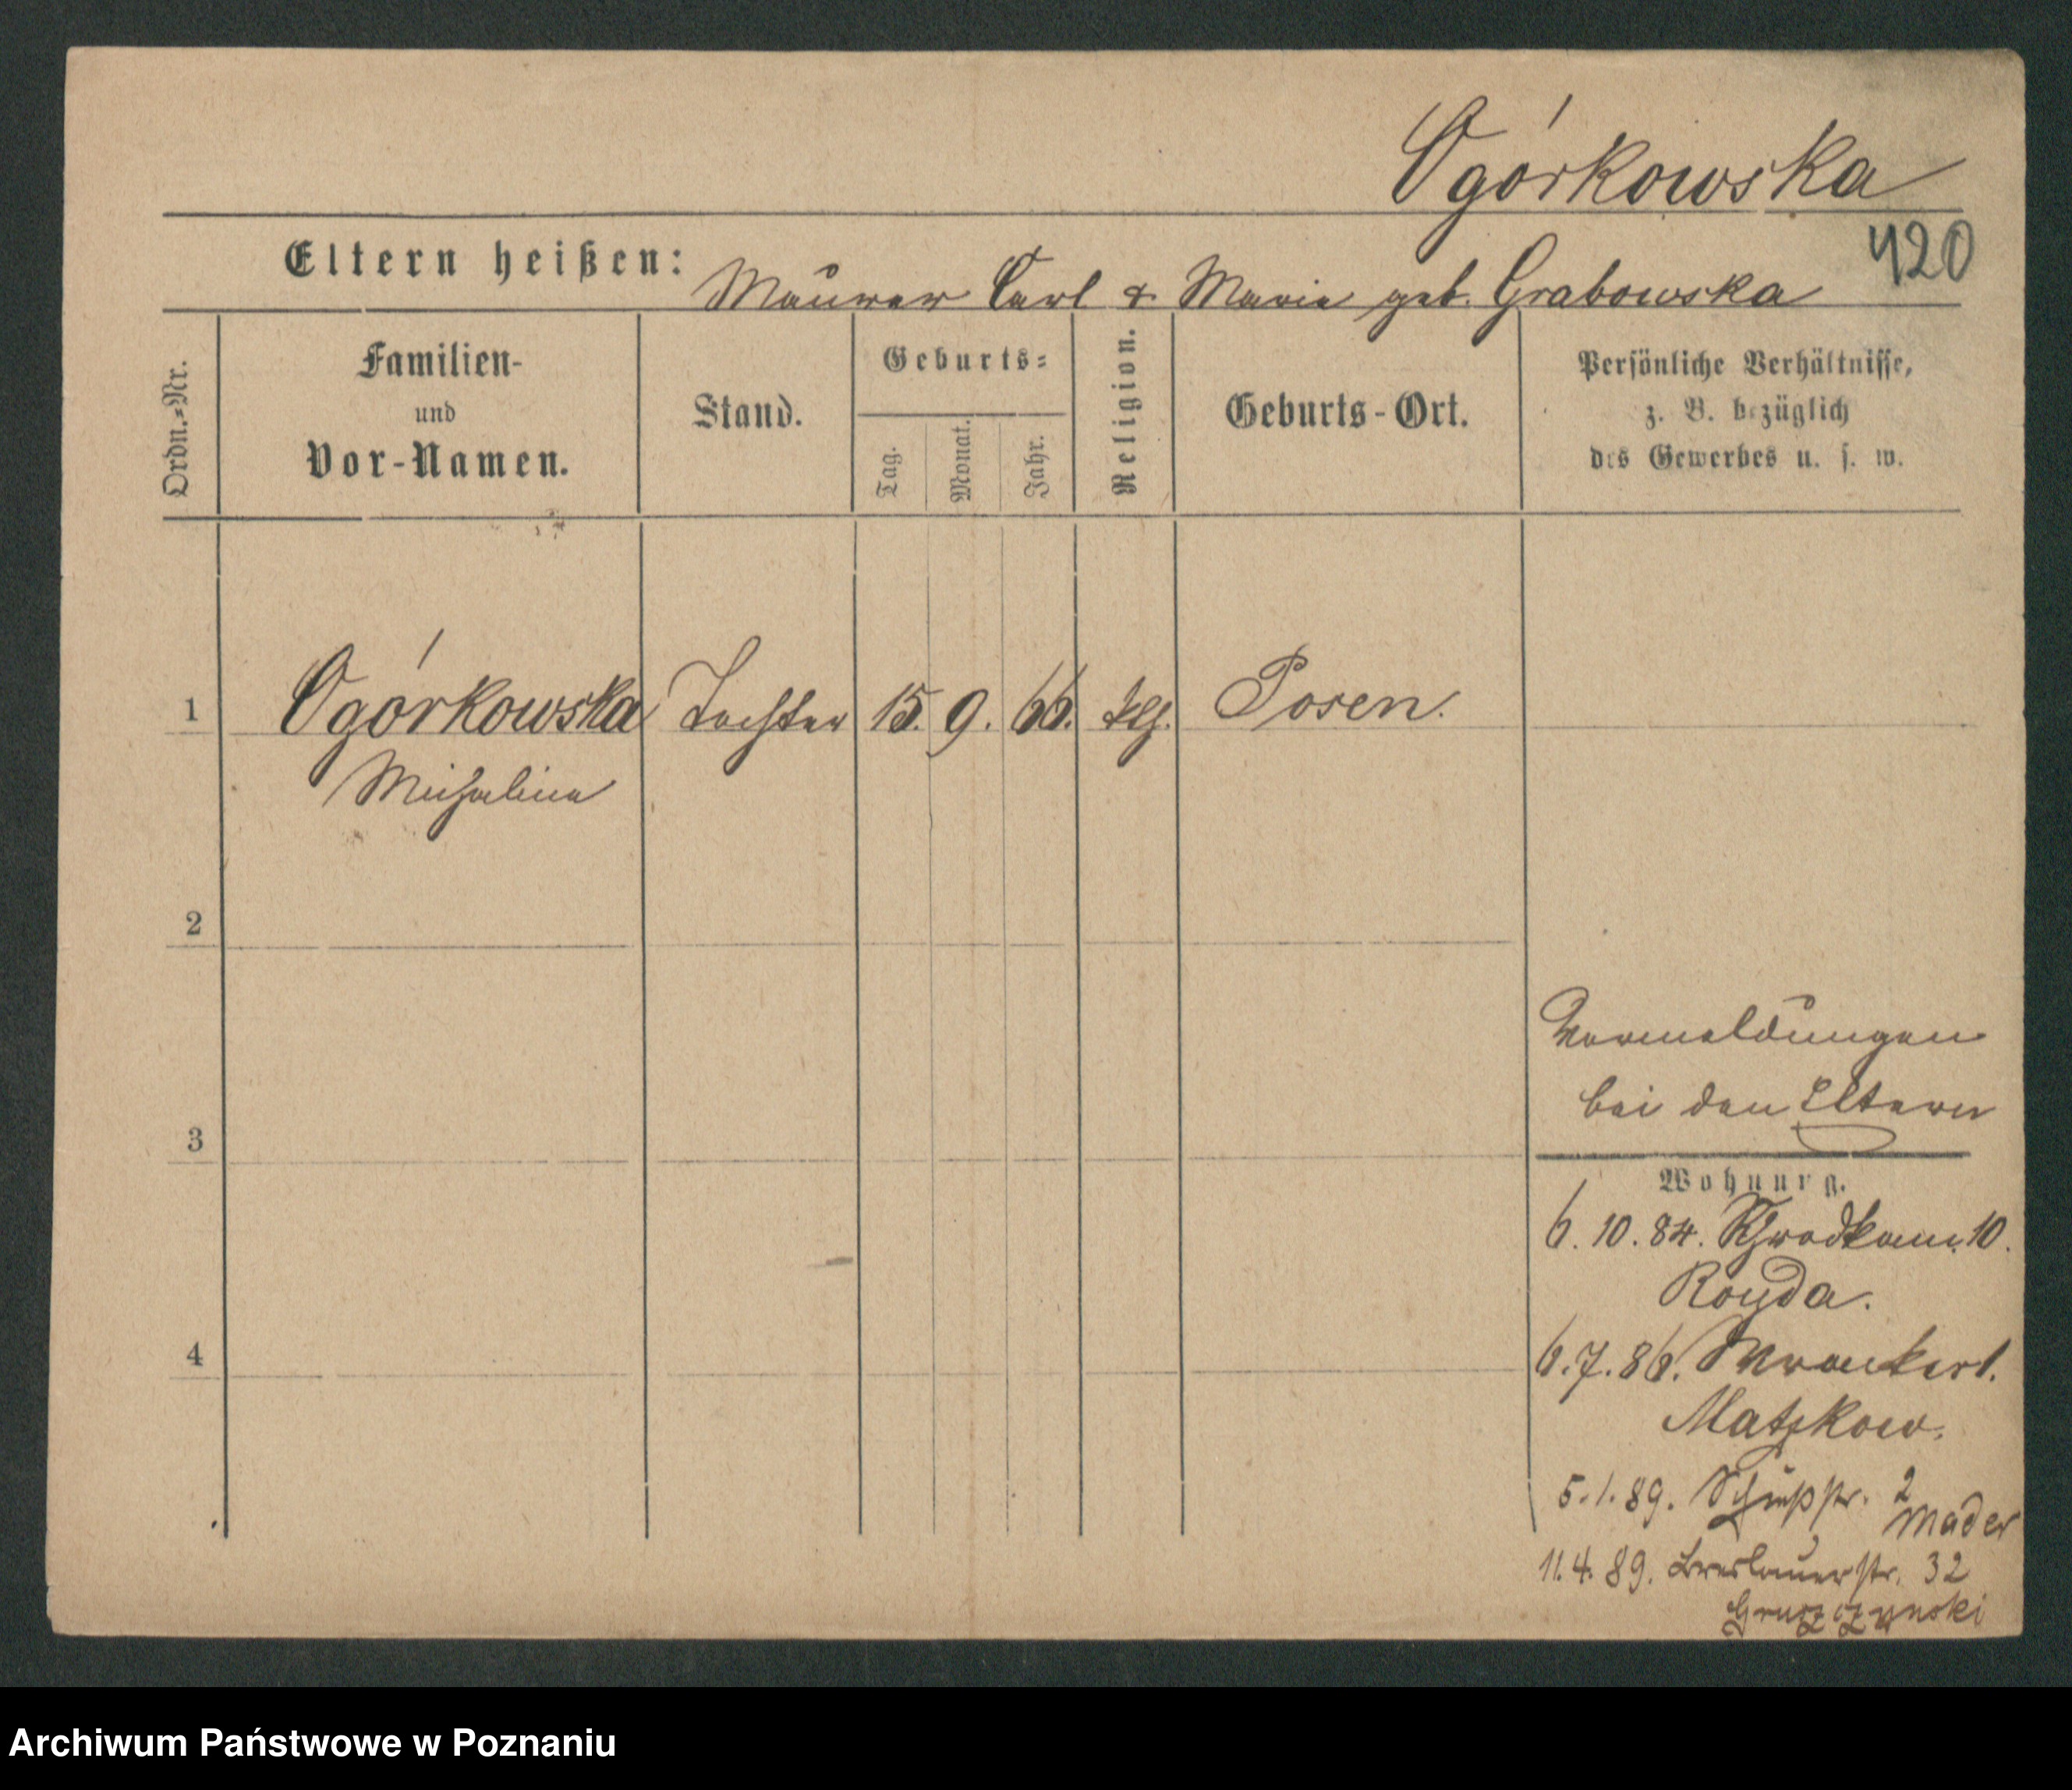 Ogórkowska
420
Eltern heißen: Maurer Carl & Marie geb. Grabowska
Ordn.=Nr.
Familien-
und
Vor-Namen.
Stand.
Geburts=
Tag.
Monat.
Jahr.
Religion.
Geburts-Ort.
Persönliche Verhältnisse,
z. B. bezüglich
des Gewerbes u. s. w.
1 Ogórkowska Tochter 15. 9. 66. Posen.
Michalina
2
Vormeldungen
bei den Eltern
3
Wohnung.
6. 10. 84. 10.
Royda.
4
6. 7. 86. 1.
Matzkow.
5. 1. 89. Schießstr. 2
Mader
11. 4. 89. Breslauerstr. 32
Gruszczynski
Archiwum Państwowe w Poznaniu